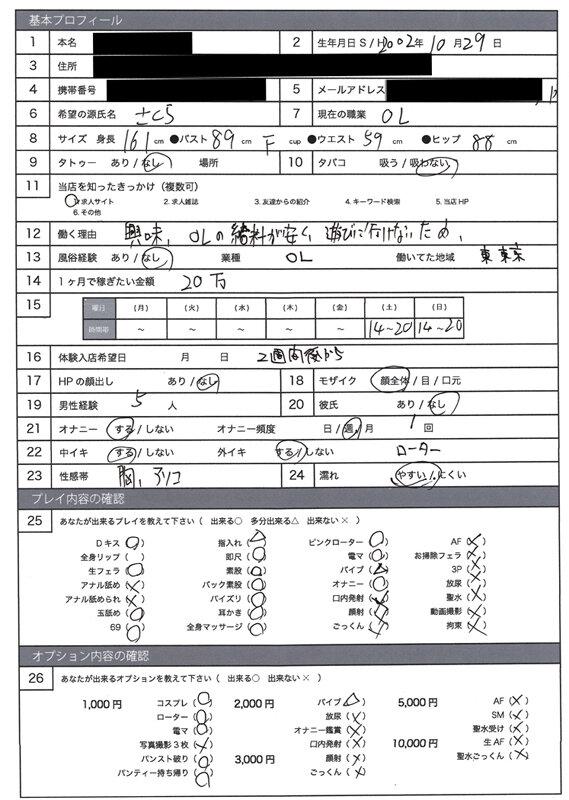 基本プロフィール
1 本名 2 生年月日 S / H 2002年 10月 29日
3 住所
4 携帯番号 5 メールアドレス
6 希望の源氏名 さくら 7 現在の職業 OL
8 サイズ 身長 161 cm ●バスト 89 cm F cup ●ウエスト 59 cm ●ヒップ 88 cm
9 タトゥー あり / なし 場所 10 タバコ 吸う / 吸わない
11 当店を知ったきっかけ（複数可）
1.求人サイト 2.求人雑誌 3.友達からの紹介 4.キーワード検索 5.当店HP
6.その他
12 働く理由 興味、OLの給料が安く、遊びに行けないため、
13 風俗経験 あり / なし 業種 OL 働いてた地域 東京
14 1ヶ月で稼ぎたい金額 20万
15 曜日 (月) (火) (水) (木) (金) (土) (日)
時間帯 ～ ～ ～ ～ ～ 14~20 14~20
16 体験入店希望日 月 日 2週間後から
17 HPの顔出し あり / なし 18 モザイク 顔全体 / 目 / 口元
19 男性経験 5 人 20 彼氏 あり / なし
21 オナニー する / しない オナニー頻度 日 / 週 / 月 1 回
22 中イキ する / しない 外イキ する / しない ローター
23 性感帯 胸、クリ 24 濡れ やすい / にくい
プレイ内容の確認
25 あなたが出来るプレイを教えて下さい（ 出来る○ 多分出来る△ 出来ない× ）
Dキス (○) 指入れ (△) ピンクローター (○) AF (×)
全身リップ ( ) 即尺 (○) 電マ (○) お掃除フェラ (×)
生フェラ (○) 素股 (○) バイブ (△) 3P (×)
アナル舐め (×) バック素股 (○) オナニー (○) 放尿 (×)
アナル舐められ (×) パイズリ (○) 口内発射 (×) 聖水 (×)
玉舐め (○) 耳かき (○) 顔射 (×) 動画撮影 (×)
69 (○) 全身マッサージ (○) ごっくん (×) 拘束 (×)
オプション内容の確認
26 あなたが出来るオプションを教えて下さい（ 出来る○ 出来ない× ）
1,000円 コスプレ (○) 2,000円 バイブ (△) 5,000円 AF (×)
ローター (○) 放尿 (×) SM (×)
電マ (○) オナニー鑑賞 (×) 聖水受け (×)
写真撮影3枚 (×) 口内発射 (×) 10,000円 生AF (×)
パンスト破り (○) 3,000円 顔射 (×) 聖水ごっくん (×)
パンティー持ち帰り (○) ごっくん (×)